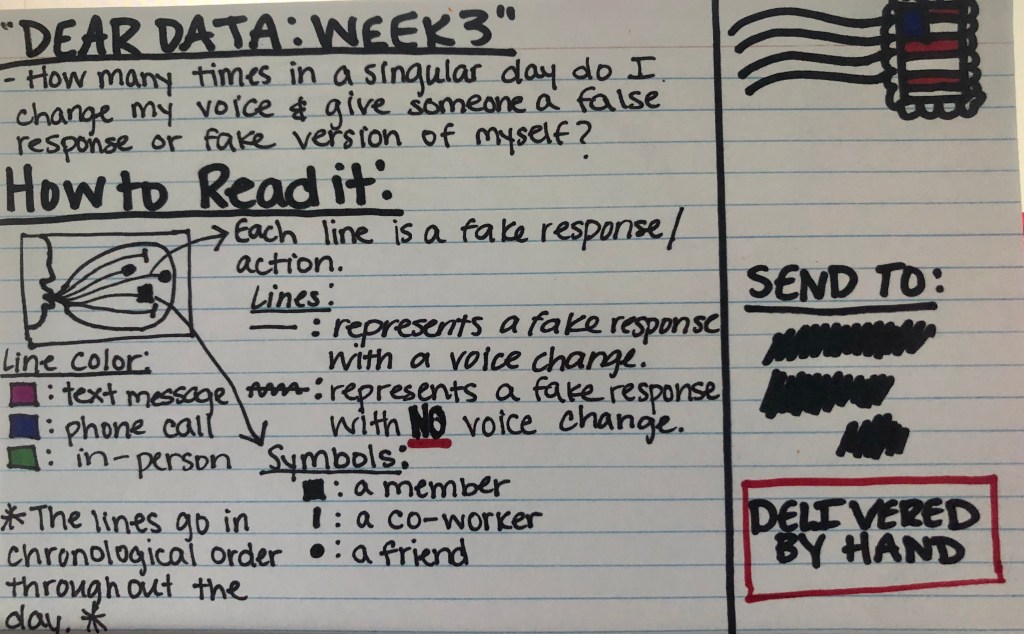 "DEAR DATA: WEEK 3"
- How many times in a singular day do I
change my voice & give someone a false
response or fake version of myself?
How to Read it:
Each line is a fake response/
action.
Lines:
— : represents a fake response
with a voice change.
: represents a fake response
with NO voice change.
Line color:
: text message
: phone call
: in-person
Symbols:
■ : a member
I : a co-worker
● : a friend
*The lines go in
chronological order
throughout the
day.*
SEND TO:
DELIVERED
BY HAND